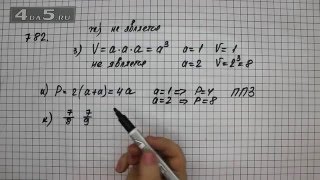 4DA5.RU
782.
ж) не является
з) V = a·a·a = a³   a=1   V=1
не является   a=2   V=2³=8
и) P = 2(a+a) = 4a   a=1 ⇒ P=4   ППЗ
a=2 ⇒ P=8
к) 7/8   7/9